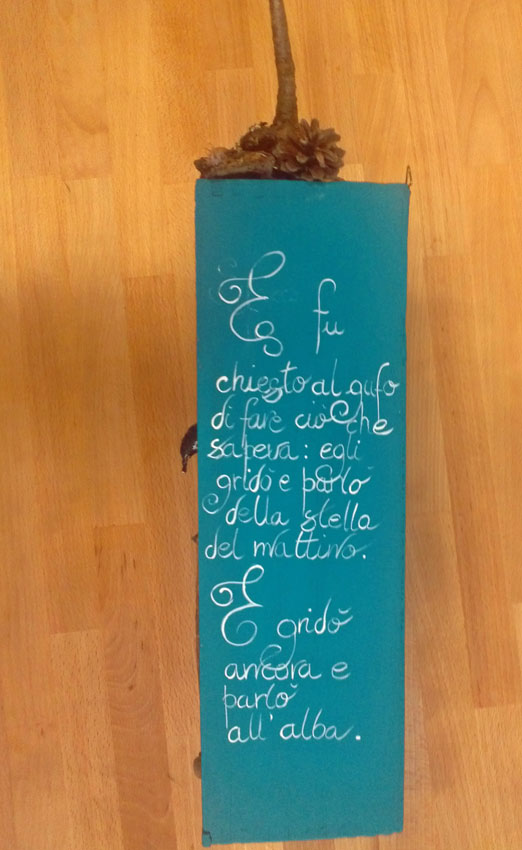 E fu
chiesto al gufo
di fare ciò che
sapeva: egli
gridò e parlò
della stella
del mattino.
E gridò
ancora e
parlò
all'alba.